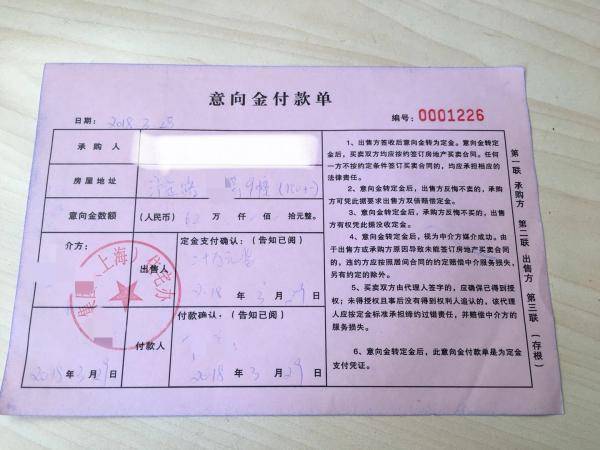 意向金付款单
日期： 2018.3.25
编号：0001226
承购人
房屋地址
意向金数额
（人民币） 万 仟 佰 拾元整。
介方：
定金支付确认：（告知已阅）
出售人
2018年3月29日
付款确认：（告知已阅）
付款人
2018年3月29日
2018年3月29日
（上海）
1、出售方签收后意向金转为定金。意向金转定
金后，买卖双方均应按约签订房地产买卖合同。任何
一方不按约定条件签订买卖合同的，均应承担相应的
法律责任。
2、意向金转定金后，出售方反悔不卖的，承购方
可凭此据要求出售方双倍赔偿定金。
3、意向金转定金后，承购方反悔不买的，出售方
有权凭此据没收定金。
4、意向金转定金后，视为中介方媒介成功。由
于出售方或承购方原因导致未能签订房地产买卖合同
的，违约方应按照居间合同的约定赔偿中介服务损失，
另有约定的除外。
5、买卖双方由代理人签字的，应确保已得到授
权；未得授权且事后没有得到权利人追认的，该代理
人应按定金标准承担缔约过错责任，并赔偿中介方的
服务损失。
6、意向金转定金后，此意向金付款单是为定金
支付凭证。
第一联 承购方 第二联 出售方 第三联（存根）